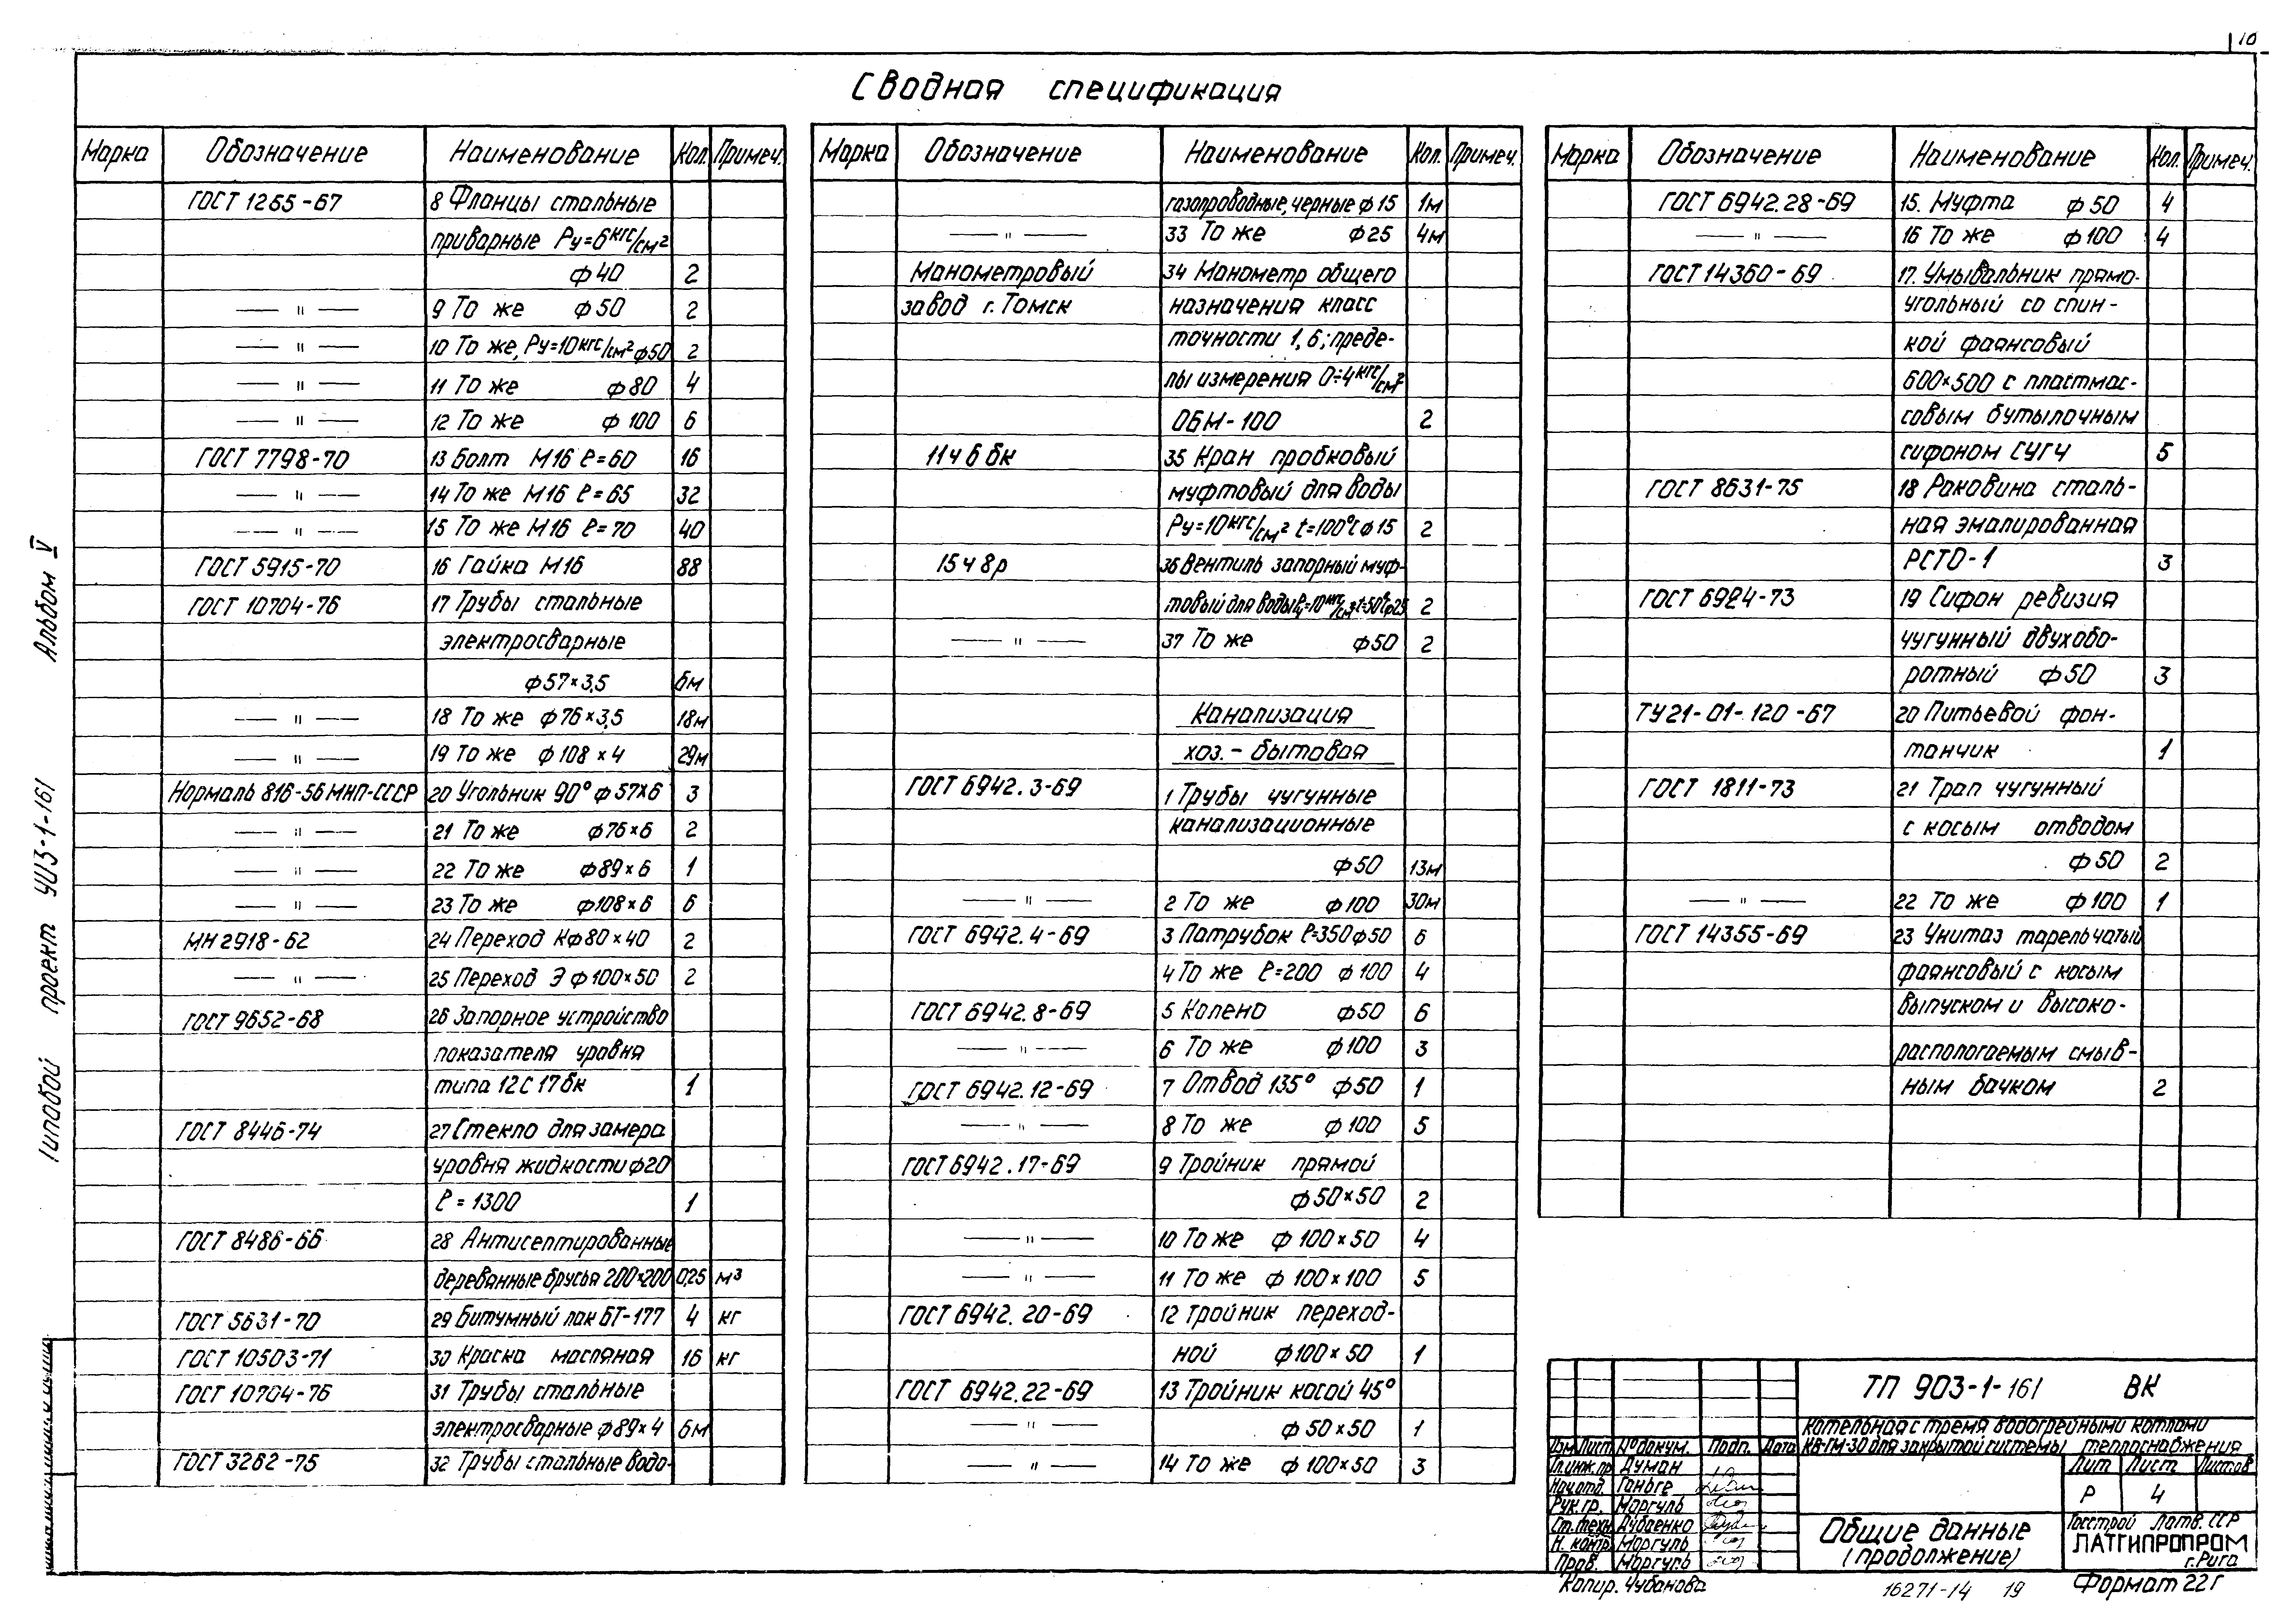 10
Сводная спецификация
Марка Обозначение Наименование Кол. Примеч.
ГОСТ 1255-67 8 Фланцы стальные
приварные Ру=6кгс/см²
ф40 2
— " — 9 То же ф50 2
— " — 10 То же, Ру=10кгс/см² ф50 2
— " — 11 То же ф80 4
— " — 12 То же ф100 6
ГОСТ 7798-70 13 Болт М16 ℓ=60 16
— " — 14 То же М16 ℓ=65 32
— " — 15 То же М16 ℓ=70 40
ГОСТ 5915-70 16 Гайка М16 88
ГОСТ 10704-76 17 Трубы стальные
электросварные
ф57×3,5 6м
— " — 18 То же ф76×3,5 18м
— " — 19 То же ф108×4 29м
Нормаль 816-56 МНП-СССР 20 Угольник 90° ф57×6 3
— " — 21 То же ф76×6 2
— " — 22 То же ф89×6 1
— " — 23 То же ф108×6 6
МН 2918-62 24 Переход Кф80×40 2
— " — 25 Переход Э ф100×50 2
ГОСТ 9652-68 26 Запорное устройство
показателя уровня
типа 12с17бк 1
ГОСТ 8446-74 27 Стекло для замера
уровня жидкости ф20
ℓ=1300 1
ГОСТ 8486-66 28 Антисептированные
деревянные брусья 200×200 0,25 м³
ГОСТ 5631-70 29 Битумный лак БТ-177 4 кг
ГОСТ 10503-71 30 Краска масляная 16 кг
ГОСТ 10704-76 31 Трубы стальные
электросварные ф89×4 6м
ГОСТ 3262-75 32 Трубы стальные водо-
Марка Обозначение Наименование Кол. Примеч.
газопроводные, черные ф15 1м
— " — 33 То же ф25 4м
Манометровый 34 Манометр общего
завод г. Томск назначения класс
точности 1,6; преде-
лы измерения 0÷4кгс/см²
ОБМ-100 2
11ч6бк 35 Кран пробковый
муфтовый для воды
Ру=10кгс/см² t=100°С ф15 2
15ч8р 36 Вентиль запорный муф-
товый для воды Ру=10кгс/см² t=50°С ф25 2
— " — 37 То же ф50 2
Канализация
хоз.-бытовая
ГОСТ 6942.3-69 1 Трубы чугунные
канализационные
ф50 13м
— " — 2 То же ф100 30м
ГОСТ 6942.4-69 3 Патрубок ℓ=350 ф50 6
4 То же ℓ=200 ф100 4
ГОСТ 6942.8-69 5 Колено ф50 6
— " — 6 То же ф100 3
ГОСТ 6942.12-69 7 Отвод 135° ф50 1
— " — 8 То же ф100 5
ГОСТ 6942.17-69 9 Тройник прямой
ф50×50 2
— " — 10 То же ф100×50 4
— " — 11 То же ф100×100 5
ГОСТ 6942.20-69 12 Тройник переход-
ной ф100×50 1
ГОСТ 6942.22-69 13 Тройник косой 45°
— " — ф50×50 1
— " — 14 То же ф100×50 3
Марка Обозначение Наименование Кол. Примеч.
ГОСТ 6942.28-69 15. Муфта ф50 4
— " — 16 То же ф100 4
ГОСТ 14360-69 17. Умывальник прямо-
угольный со спин-
кой фаянсовый
600×500 с пластмас-
совым бутылочным
сифоном СУГЧ 5
ГОСТ 8631-75 18 Раковина сталь-
ная эмалированная
РСТО-1 3
ГОСТ 6924-73 19 Сифон ревизия
чугунный двухобо-
ротный ф50 3
ТУ21-01-120-67 20 Питьевой фон-
танчик 1
ГОСТ 1811-73 21 Трап чугунный
с косым отводом
ф50 2
— " — 22 То же ф100 1
ГОСТ 14355-69 23 Унитаз тарельчатый
фаянсовый с косым
выпуском и высоко-
распологаемым смыв-
ным бачком 2
Альбом V
Типовой проект 903-1-161
ТП 903-1-161 ВК
Котельная с тремя водогрейными котлами
КВ-ГМ-30 для закрытой системы теплоснабжения
Изм Лист № докум. Подп. Дата
Гл.инж.пр Думан
Нач.отд. Ганьге
Рук.гр. Моргуль
Ст.техн. Дубаенко
Н. контр Моргуль
Пров. Моргуль
Лит Лист Листов
Р 4
Общие данные
(продолжение)
Госстрой Латв. ССР
ЛАТГИПРОПРОМ
г. Рига
Копир. Чубанова
16271-14 19
Формат 22г